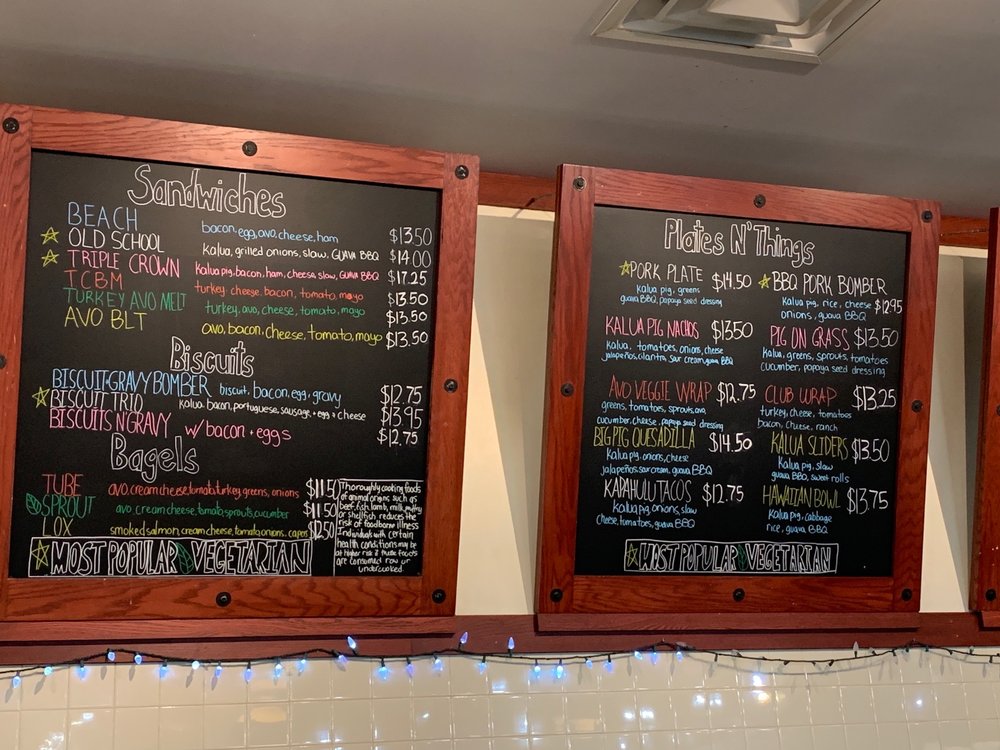 Sandwiches
BEACH bacon, egg, avo, cheese, ham $13.50
OLD SCHOOL kalua, grilled onions, slaw, GUAVA BBQ $14.00
TRIPLE CROWN kalua pig, bacon, ham, cheese, slaw, GUAVA BBQ $17.25
TCBM turkey, cheese, bacon, tomato, mayo $13.50
TURKEY AVO MELT turkey, avo, cheese, tomato, mayo $13.50
AVO BLT avo, bacon, cheese, tomato, mayo $13.50
Biscuits
BISCUIT+GRAVY BOMBER biscuit, bacon, egg, gravy $12.75
BISCUIT TRIO kalua, bacon, portuguese, sausage, + egg + cheese $13.95
BISCUITS N'GRAVY w/ bacon + eggs $12.75
Bagels
TUBE avo, cream cheese, tomato, turkey, greens, onions $11.50
SPROUT avo, cream cheese, tomato, sprouts, cucumber $11.50
LOX smoked salmon, cream cheese, tomato, onions, capes $12.50
MOST POPULAR VEGETARIAN
Thoroughly cooking foods
of animal origins such as
beef, fish, lamb, milk, poultry
or shellfish reduces the
risk of foodborne illness
Individuals with certain
health conditions may be
at higher risk if these foods
are consumed raw or
undercooked.
Plates N' Things
PORK PLATE $14.50
kalua pig, greens
guava BBQ, papaya seed dressing
BBQ PORK BOMBER
kalua pig, rice, cheese $12.95
onions, guava BBQ
KALUA PIG NACHOS $13.50
kalua, tomatoes, onions, cheese
jalapeños, cilantro, sour cream, guava BBQ
PIG ON GRASS $13.50
kalua, greens, sprouts, tomatoes
cucumber, papaya seed dressing
AVO VEGGIE WRAP $12.75
greens, tomatoes, sprouts, avo
cucumber, cheese, papaya seed dressing
CLUB WRAP $13.25
turkey, cheese, tomatoes
bacon, cheese, ranch
BIG PIG QUESADILLA $14.50
kalua pig, onions, cheese
jalapeños, sour cream, guava BBQ
KALUA SLIDERS $13.50
kalua pig, slaw
guava BBQ, sweet rolls
KAPAHULU TACOS $12.75
kalua pig, onions, slaw
cheese, tomatoes, guava BBQ
HAWAIIAN BOWL $13.75
kalua pig, cabbage
rice, guava BBQ
MOST POPULAR VEGETARIAN